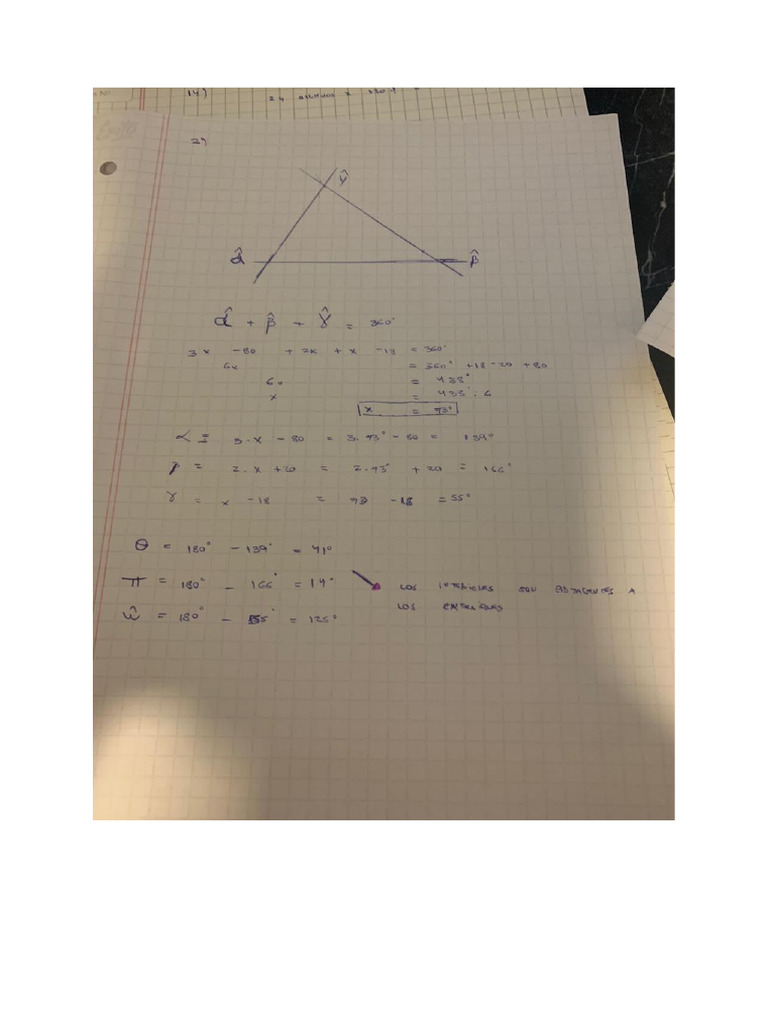 14)
2)
γ̂
α̂ β̂
α̂ + β̂ + γ̂ = 360°
3x - 80 + 2x + x - 18 = 360°
6x = 360° + 18 - 20 + 80
6x = 438°
x = 438° : 6
x = 73°
α = 3.x - 80 = 3.73° - 80 = 139°
β = 2.x + 20 = 2.73° + 20 = 166°
γ = x - 18 = 73 - 18 = 55°
θ = 180° - 139° = 41°
π = 180° - 166° = 14° LOS INTERIORES SON ADYACENTES A
ŵ = 180° - 55° = 125° LOS EXTERIORES